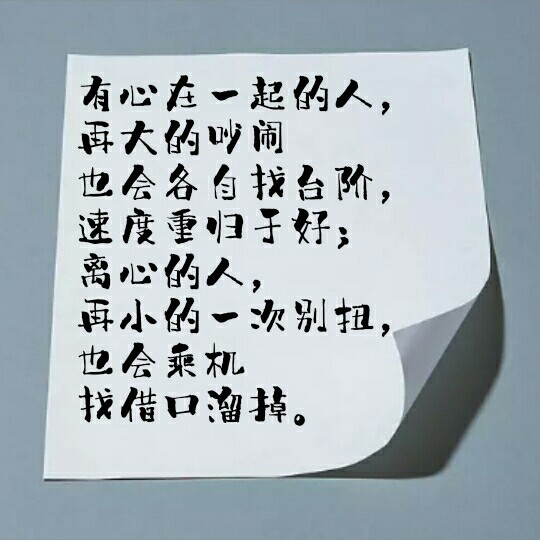 有心在一起的人，
再大的吵闹
也会各自找台阶，
速度重归于好；
离心的人，
再小的一次别扭，
也会乘机
找借口溜掉。